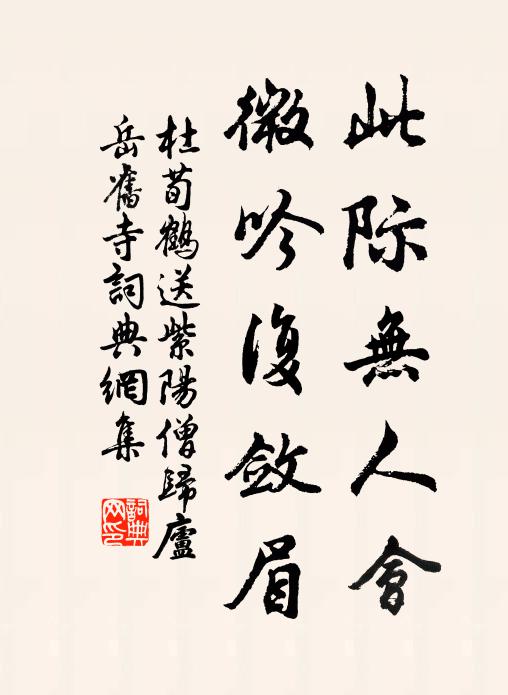 此际無人會
微吟復斂眉
杜荀鶴送紫陽僧歸廬
岳舊寺詞典網集
詞典
网印